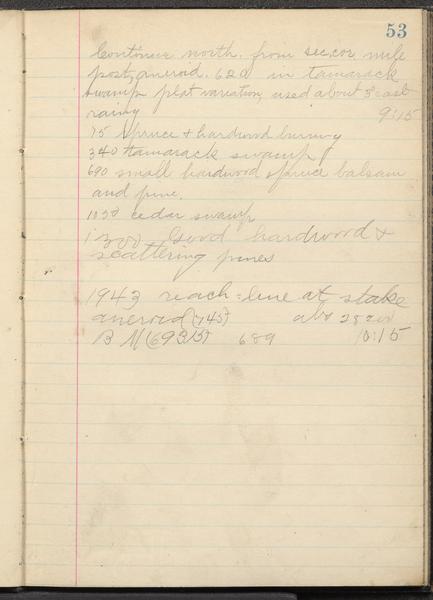 53
Continue north. from sec. cor mile
post, aneroid. 620 in tamarack
swamp plat variation, used about 3° east
rainy 9:15
75 spruce & hardwood burning
340 tamarack swamp
690 small hardwood spruce balsam
and pine.
1020 cedar swamp
1300 Good hardwood &
scattering pines
1943 reach line at stake
aneroid (745)
B M (693.15) 689 10:15